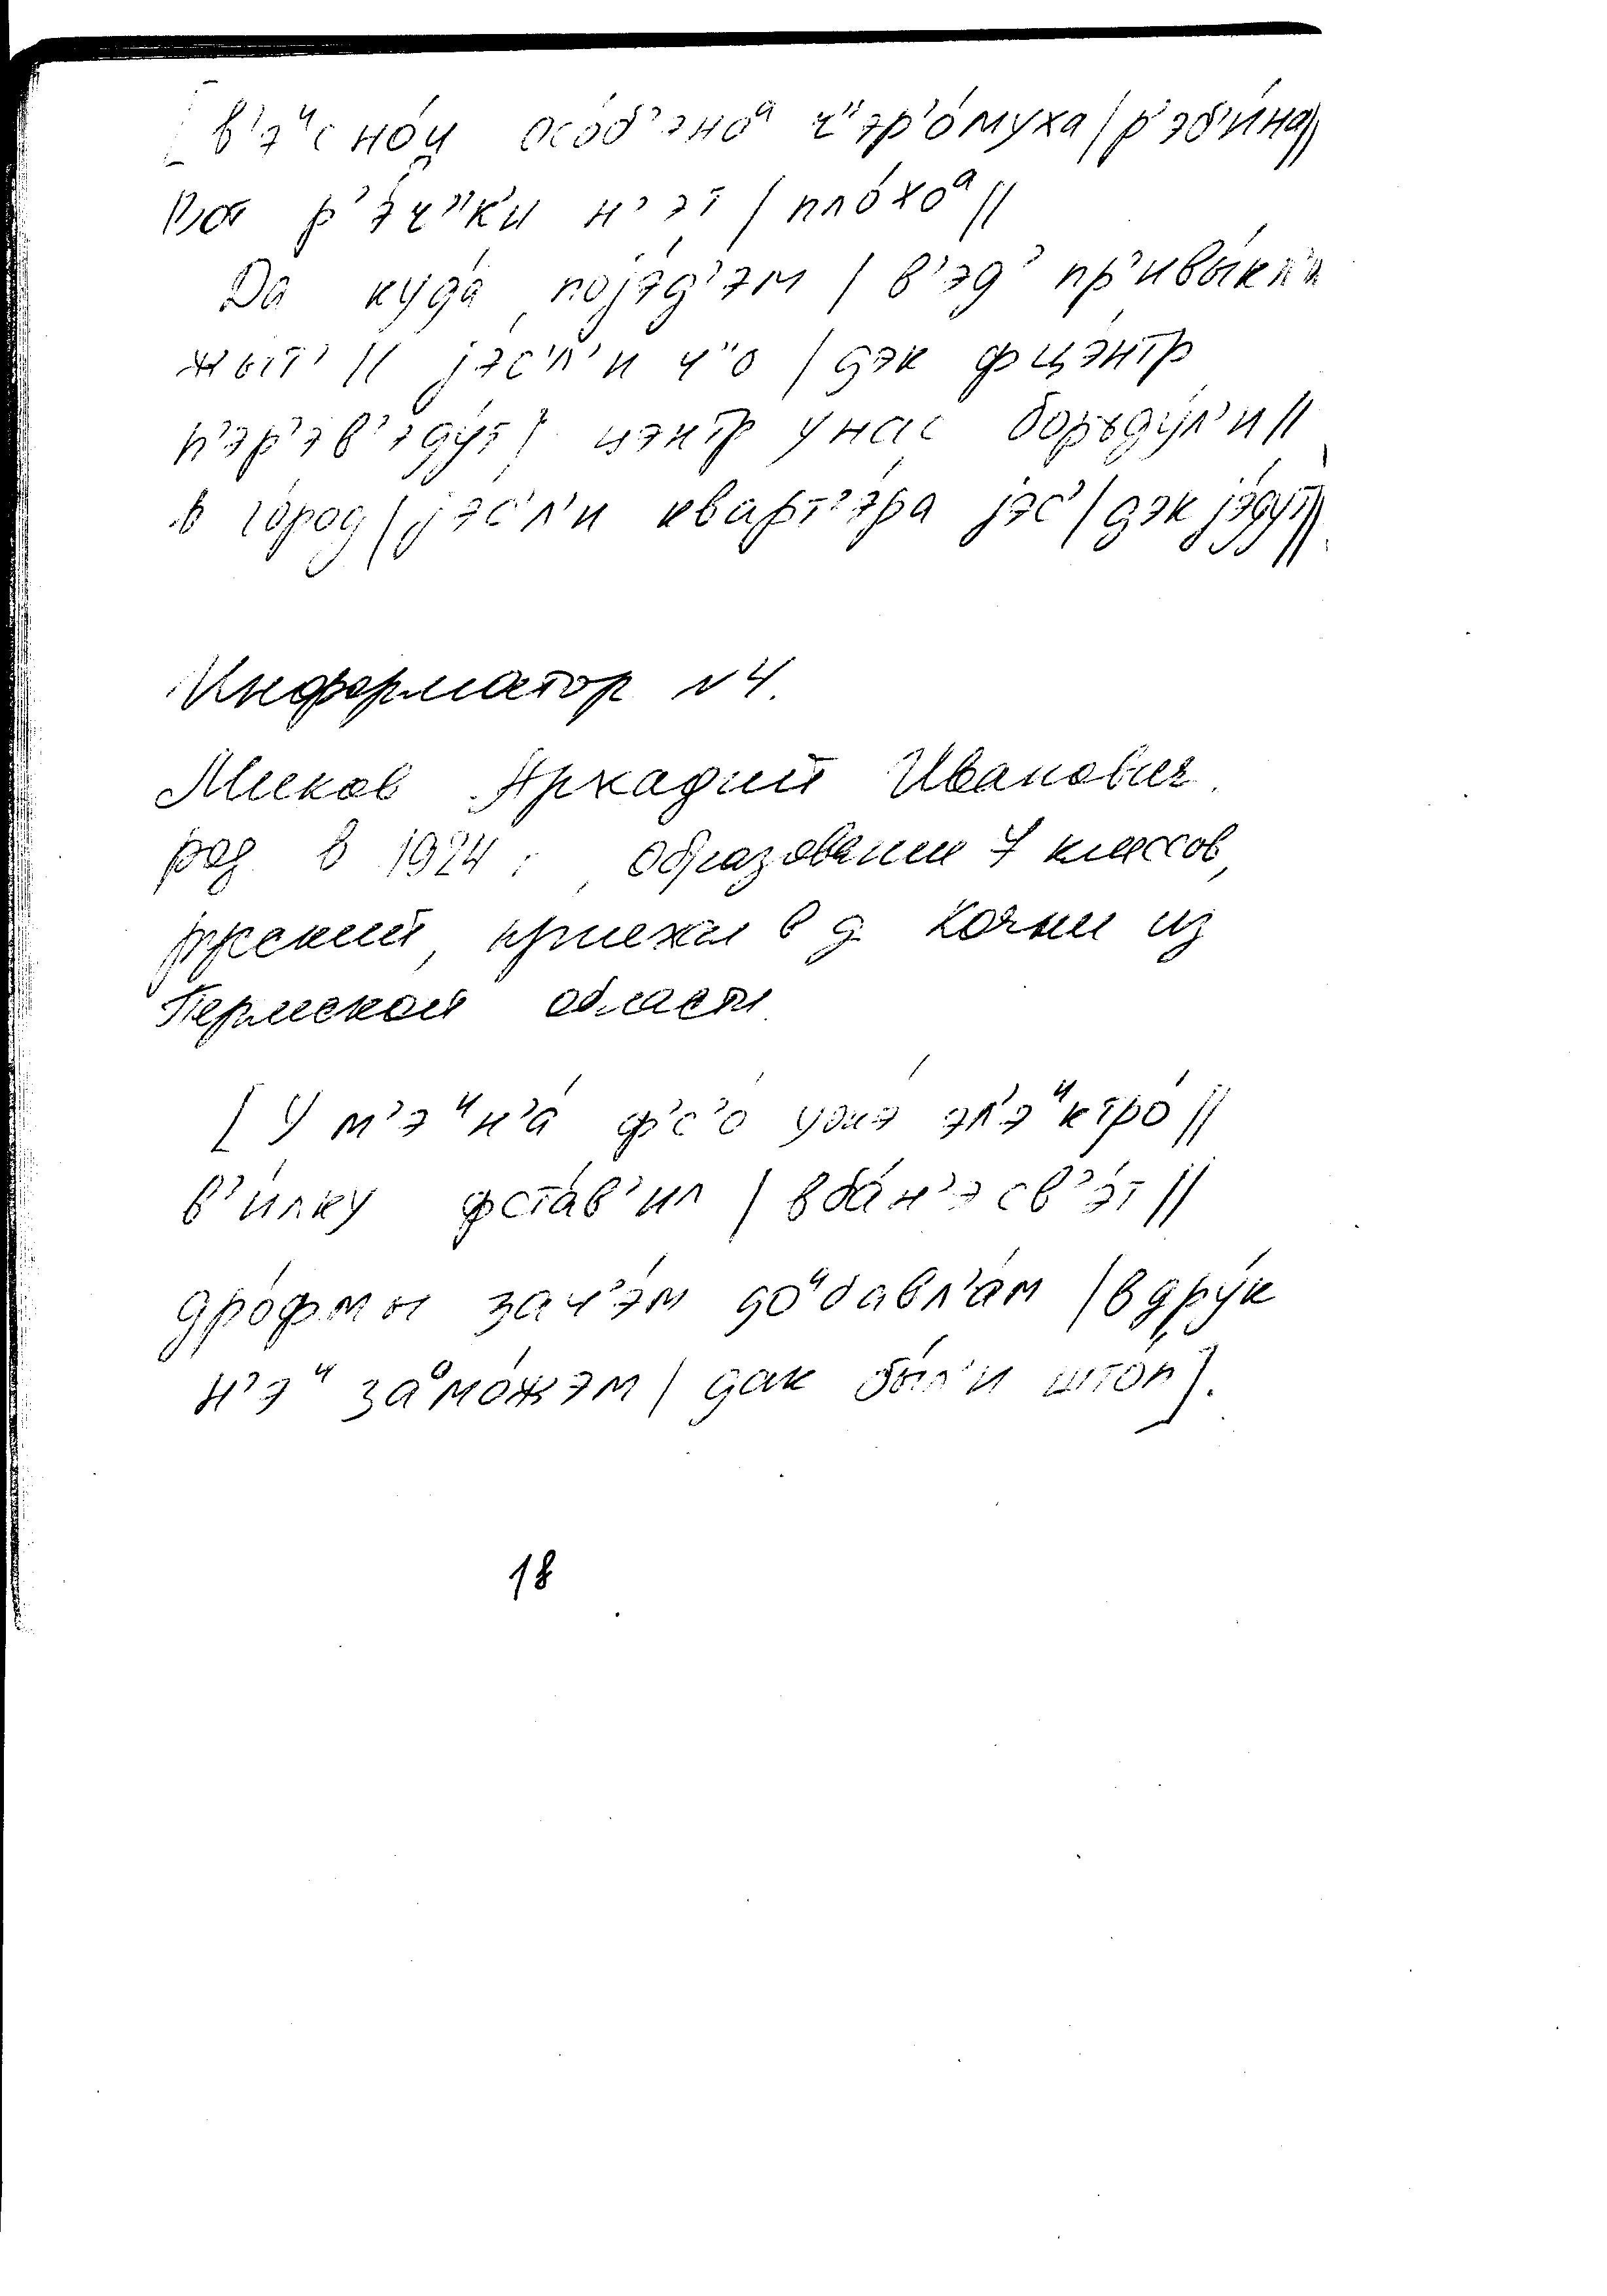 [в’эᶸсно́и̯ осо́б’эноᵃ ч"эр’о́муха/р’эб’и́на//
Вот р’э́ч"к’и н’эт / пло́хоᵃ //
Да куда́ поjэ́д’эм / в’эд’ пр’ивы́кл’и
жыт’ // jэ́с’л’и ч"о / дэк фцэ́нтр
п’эр’эв’эду́т/ цэнтр у нас боръду́л’и//
в го́род/jэ́с’л’и кварт’э́ра jэс’/дэк jэ́дут//
Информатор N 4.
Миков Аркадий Иванович.
род. в 1924 г., образование 7 классов,
русский, приехал в д. Кочни из
Пермской области.
[У м’эᶸн’а́ ф’с’о́ ужэ́ эл’эᶸктро́ //
в’и́лку фста́в’ил / вба́н’э св’эт //
дро́фмы зач’э́м доᶸбавл’а́м /вдру́к
н’эᶸ заᵒмо́жэм / дак бы́л’и што́п].
18